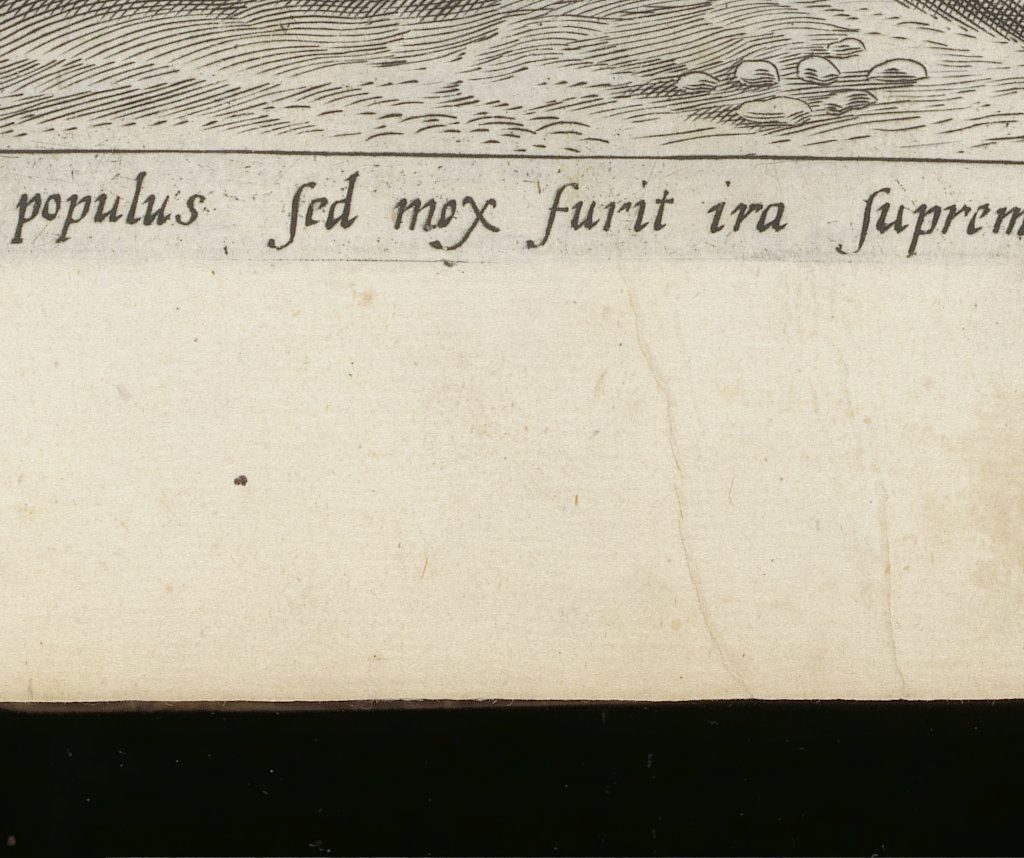 populus ſed mox furit ira ſuprem